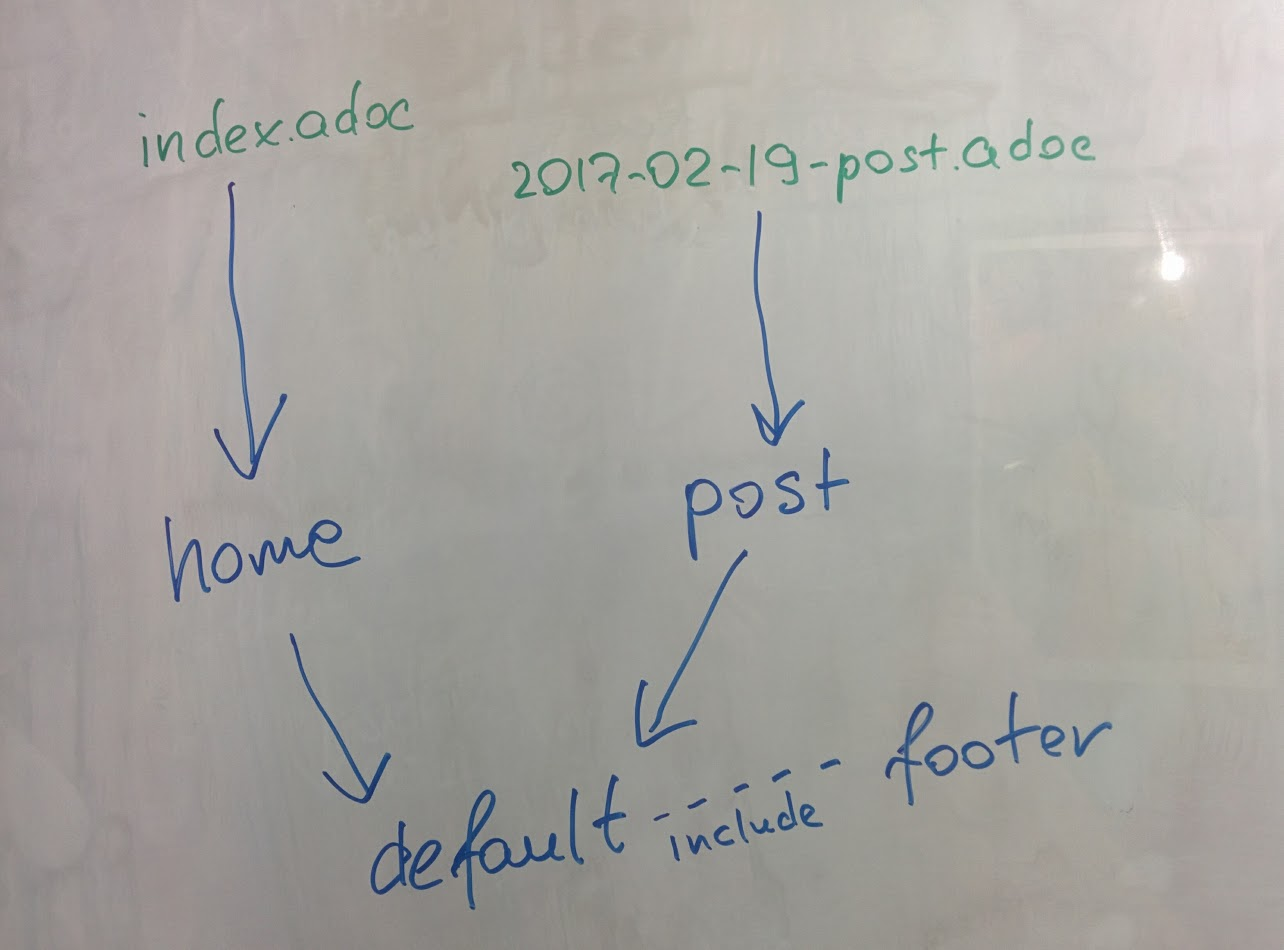 index.adoc
2017-02-19-post.adoc
home
post
default include footer